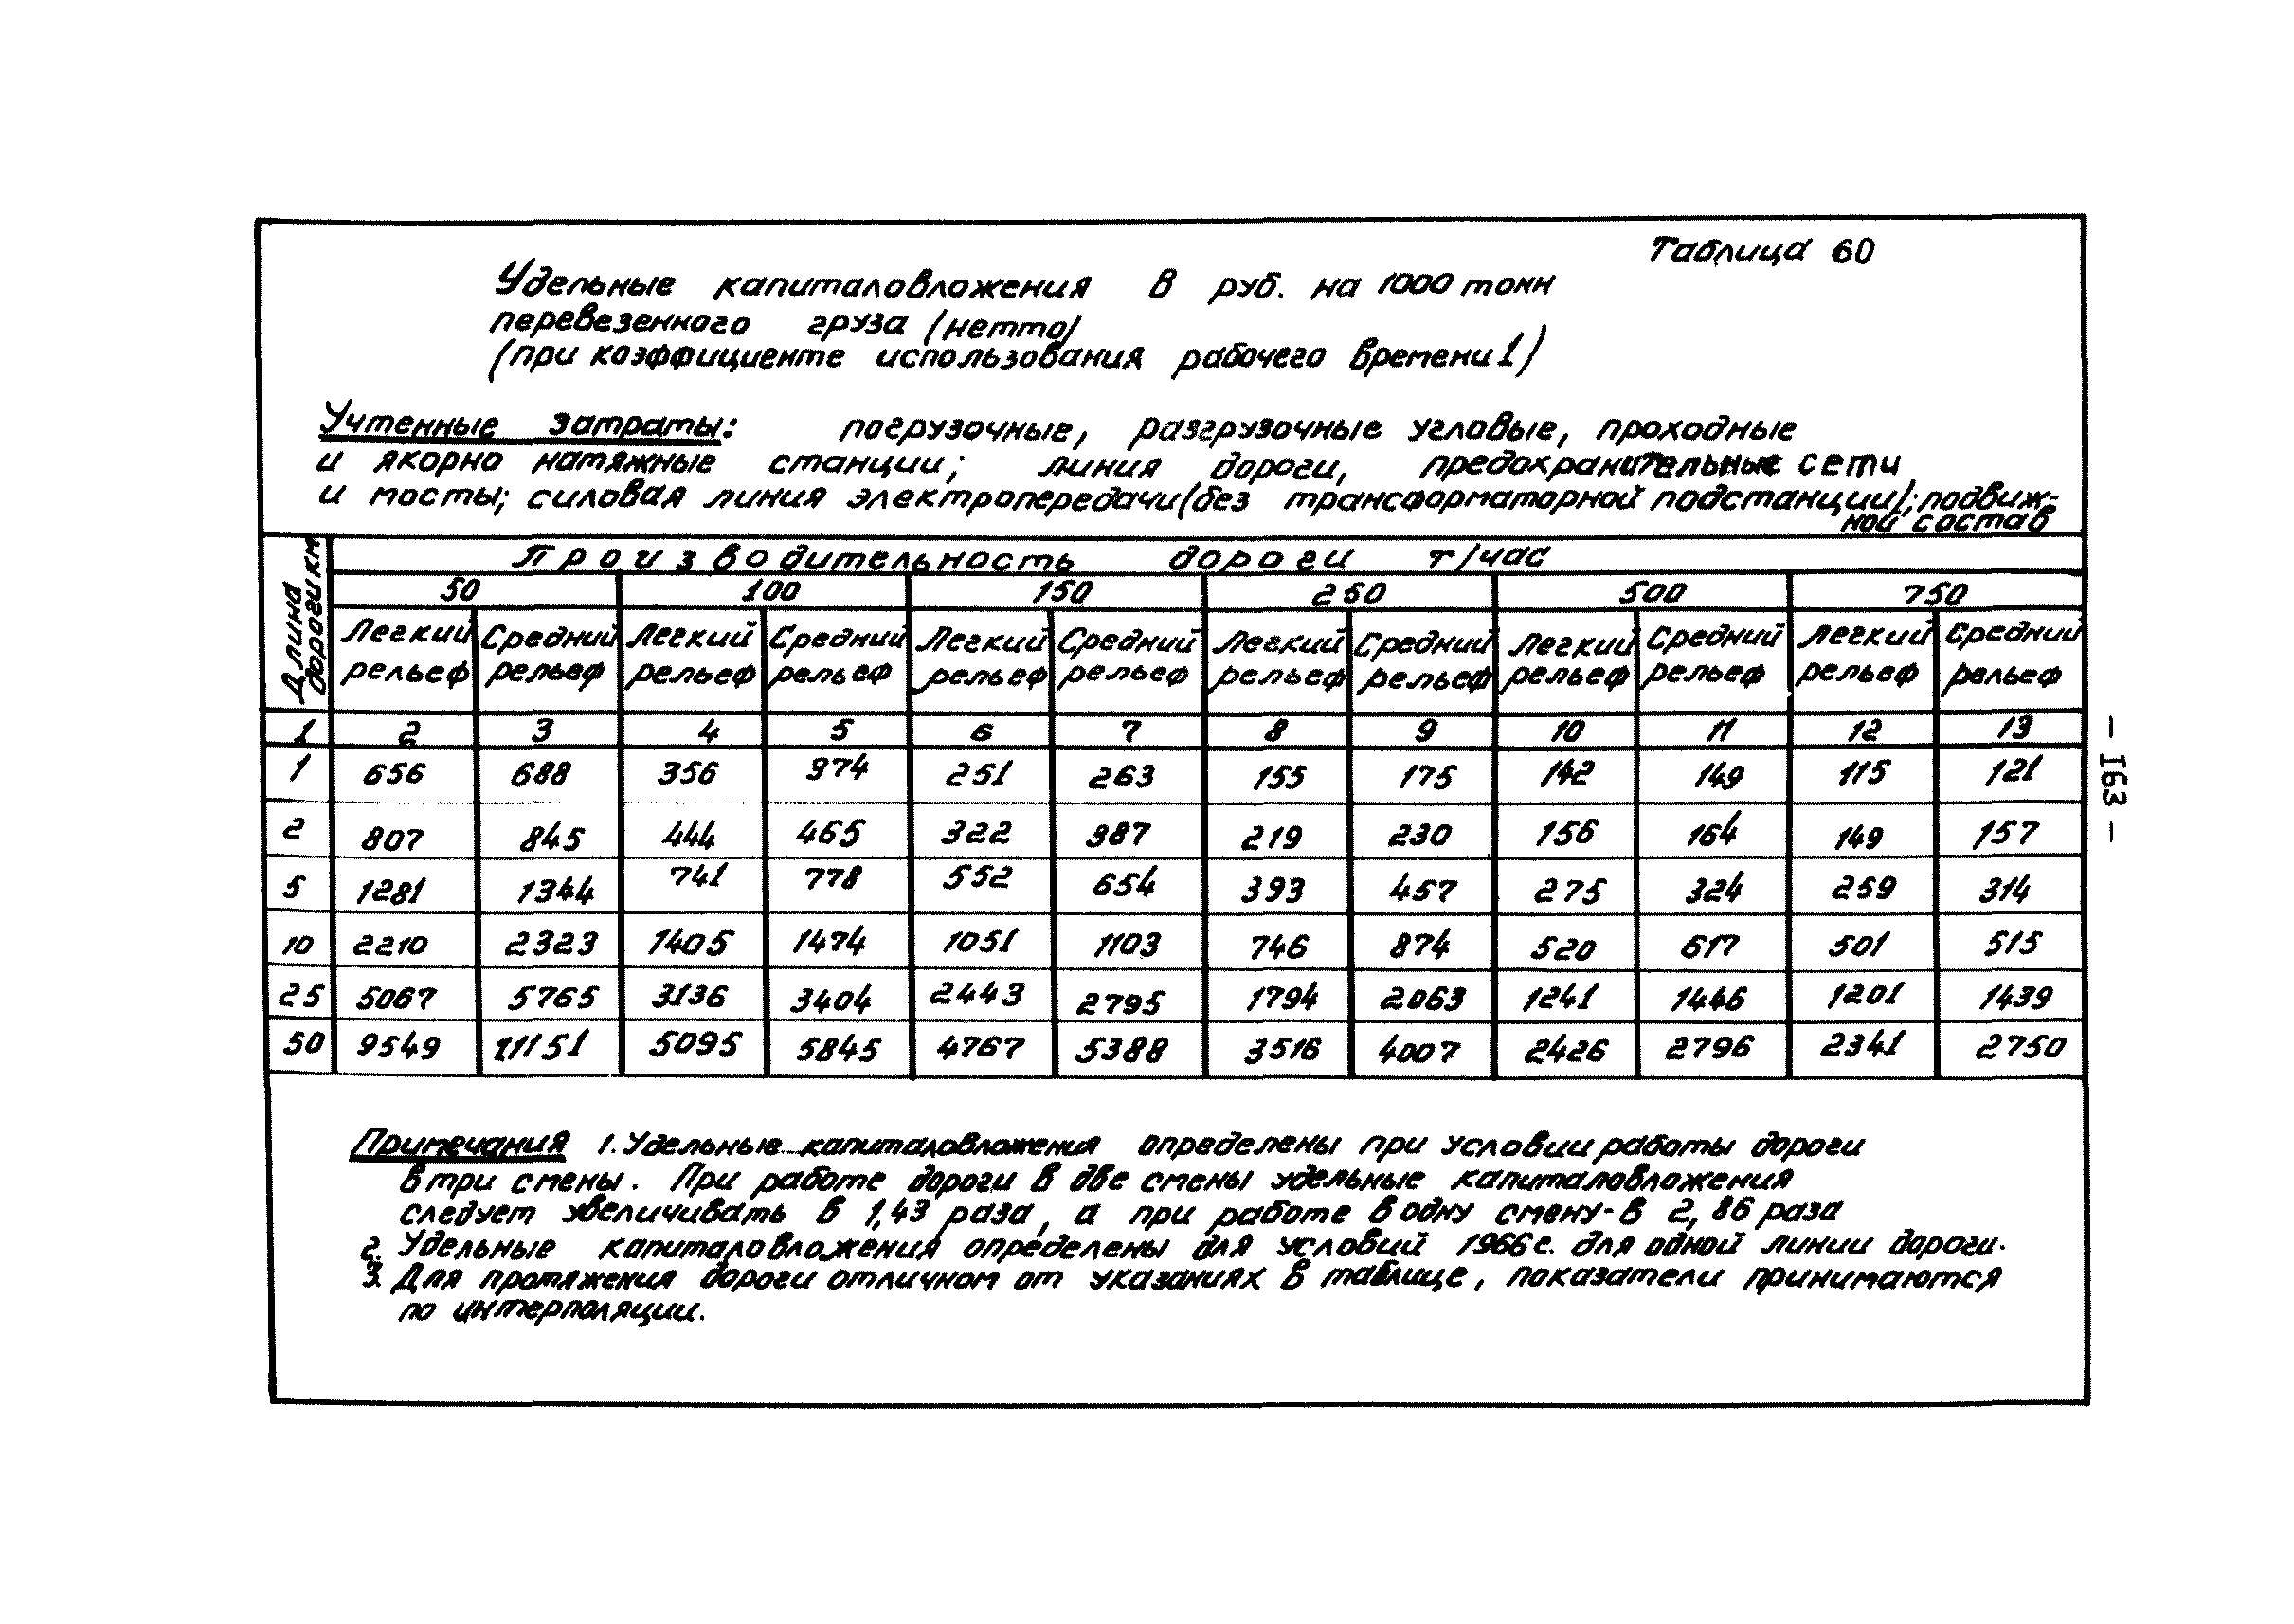 Таблица 60
Удельные капиталовложения в руб. на 1000 тонн
перевезенного груза (нетто)
(при коэффициенте использования рабочего времени 1)
Учтенные затраты: погрузочные, разгрузочные угловые, проходные
и якорно натяжные станции; линия дороги, предохранительные сети
и мосты; силовая линия электропередачи (без трансформаторной подстанции); подвиж-
ной состав
Длина дороги км
Производительность дороги т/час
50 100 150 250 500 750
Легкий рельеф Средний рельеф Легкий рельеф Средний рельеф Легкий рельеф Средний рельеф Легкий рельеф Средний рельеф Легкий рельеф Средний рельеф Легкий рельеф Средний рельеф
1 2 3 4 5 6 7 8 9 10 11 12 13
1 656 688 356 374 251 263 155 175 142 149 115 121
2 807 845 444 465 322 387 219 230 156 164 149 157
5 1281 1344 741 778 552 654 393 457 275 324 259 314
10 2210 2323 1405 1474 1051 1103 746 874 520 617 501 515
25 5067 5765 3136 3404 2443 2795 1794 2063 1241 1446 1201 1439
50 9549 11151 5095 5845 4767 5388 3516 4007 2426 2796 2341 2750
Примечания 1. Удельные капиталовложения определены при условии работы дороги
в три смены. При работе дороги в две смены удельные капиталовложения
следует увеличивать в 1,43 раза, а при работе в одну смену - в 2,86 раза
2. Удельные капиталовложения определены для условий 1966 г. для одной линии дороги.
3. Для протяжения дороги отличном от указаниях в таблице, показатели принимаются
по интерполяции.
- I63 -